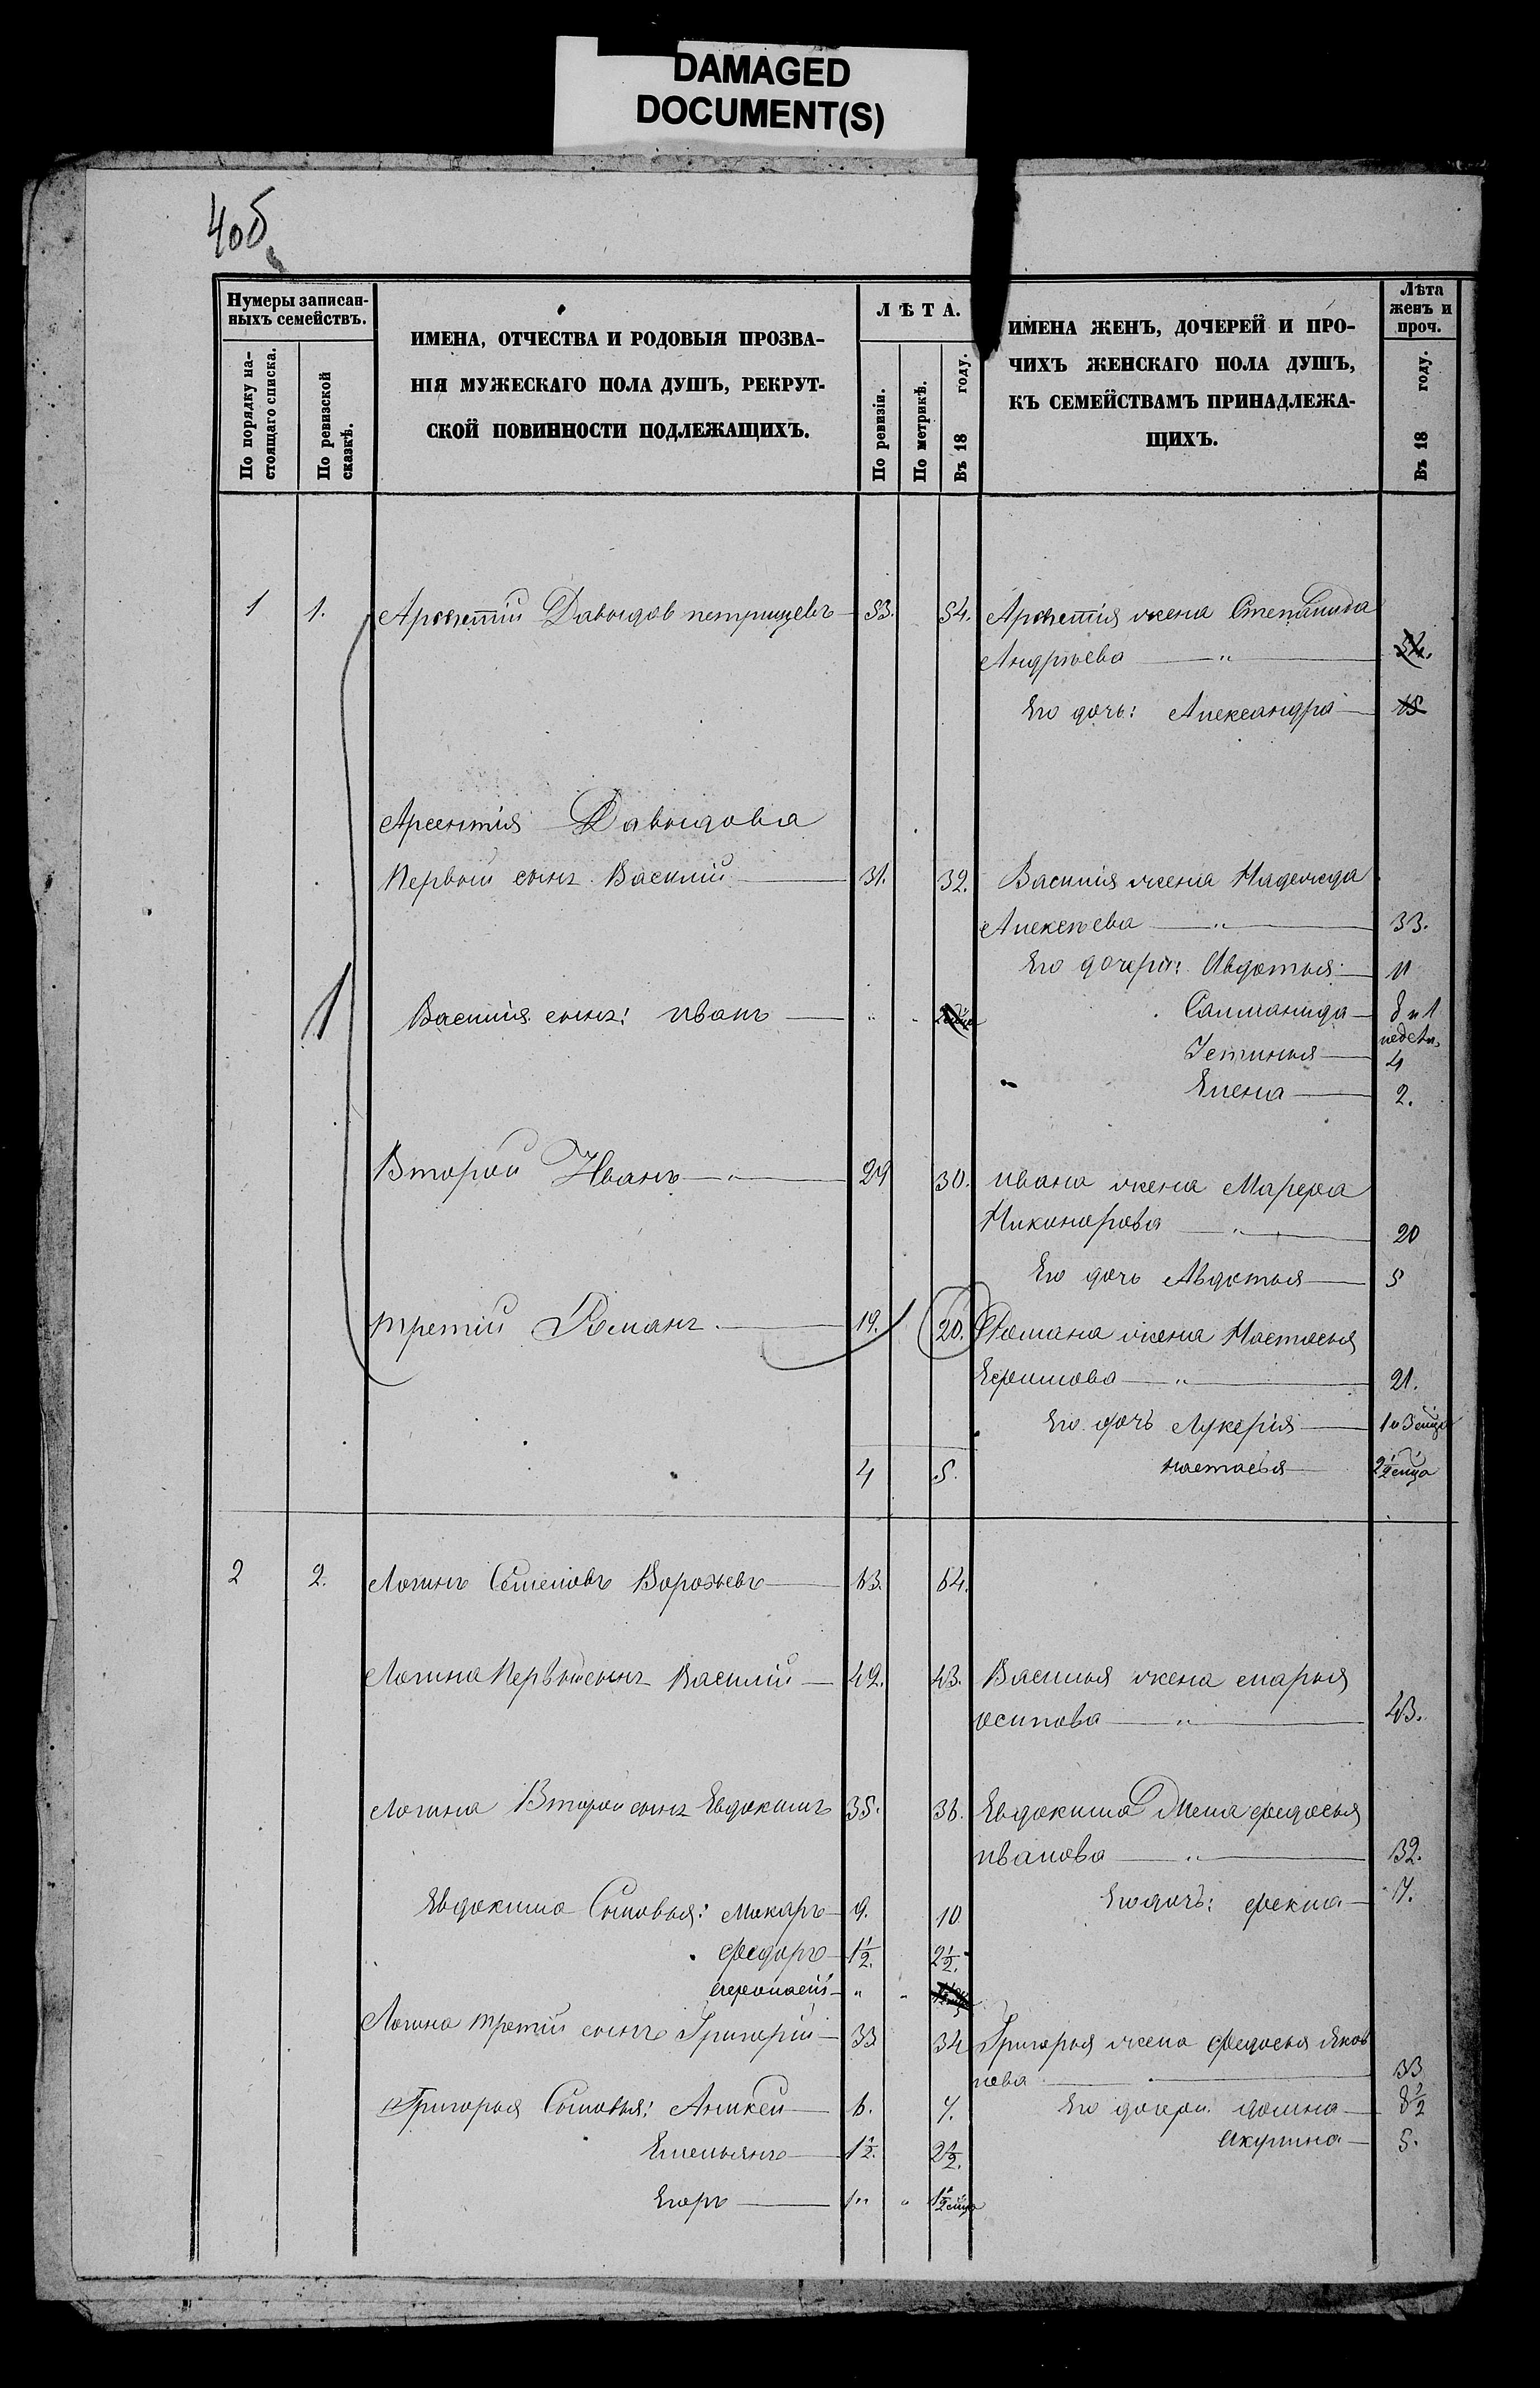 DAMAGED
DOCUMENT(S)
40б
Нумеры записан-
ныхъ семействъ.
По порядку на-
стоящаго списка.
По ревизской
сказкѣ.
ИМЕНА, ОТЧЕСТВА И РОДОВЫЯ ПРОЗВА-
НІЯ МУЖЕСКАГО ПОЛА ДУШЪ, РЕКРУТ-
СКОЙ ПОВИННОСТИ ПОДЛЕЖАЩИХЪ.
ЛѢТА.
По ревизіи.
По метрикѣ.
Въ 18 году.
ИМЕНА ЖЕНЪ, ДОЧЕРЕЙ И ПРО-
ЧИХЪ ЖЕНСКАГО ПОЛА ДУШЪ,
КЪ СЕМЕЙСТВАМЪ ПРИНАДЛЕЖА-
ЩИХЪ.
Лѣта
женъ и
проч.
Въ 18 году.
1 1. Арсентій Давыдов петрищевъ 53. 54. Арсентія жена Степанида
Андрѣева 54.
Его дочь: Александра 15
Арсентія Давыдова
Первый сынъ Василий 31. 32. Василія жена Надежда
Алексѣева 33.
Его дочери: Авдотья 11
Василия сынъ: иванъ Салманида 8 и 1
недели
1 Устинья 4
Елена 2.
Второй Иванъ 29 30. ивана жена Марфа
Никонорова 20
Его дочь Авдотья 5
третий Романъ 19. 20. Романа жена Настасья
Ефимова 21.
Его дочь Лукерія 1 и 3 мца
4 5. настасья 2½ мца
2 2. Логинъ Семеновъ Воробьевъ 63. 64.
Логина Первый сынъ Василий 42. 43. Василья жена марья
осипова 43.
Логина Второй сынъ Евдокимъ 35. 36. Евдокима жена федосья
иванова 32.
Евдокима Сыновья: Макаръ 9. 10 Его дочь: фекла 7.
федоръ 1½. 2½.
Логина третий сынъ Григорій 33 34 Григорья жена федосья Яков
лева 33
Григорья Сыновья: Аникей 6. 7. Его дочери домна 8½
Емельянъ 1½. 2½. Акулина 5.
Егоръ 1½ мца